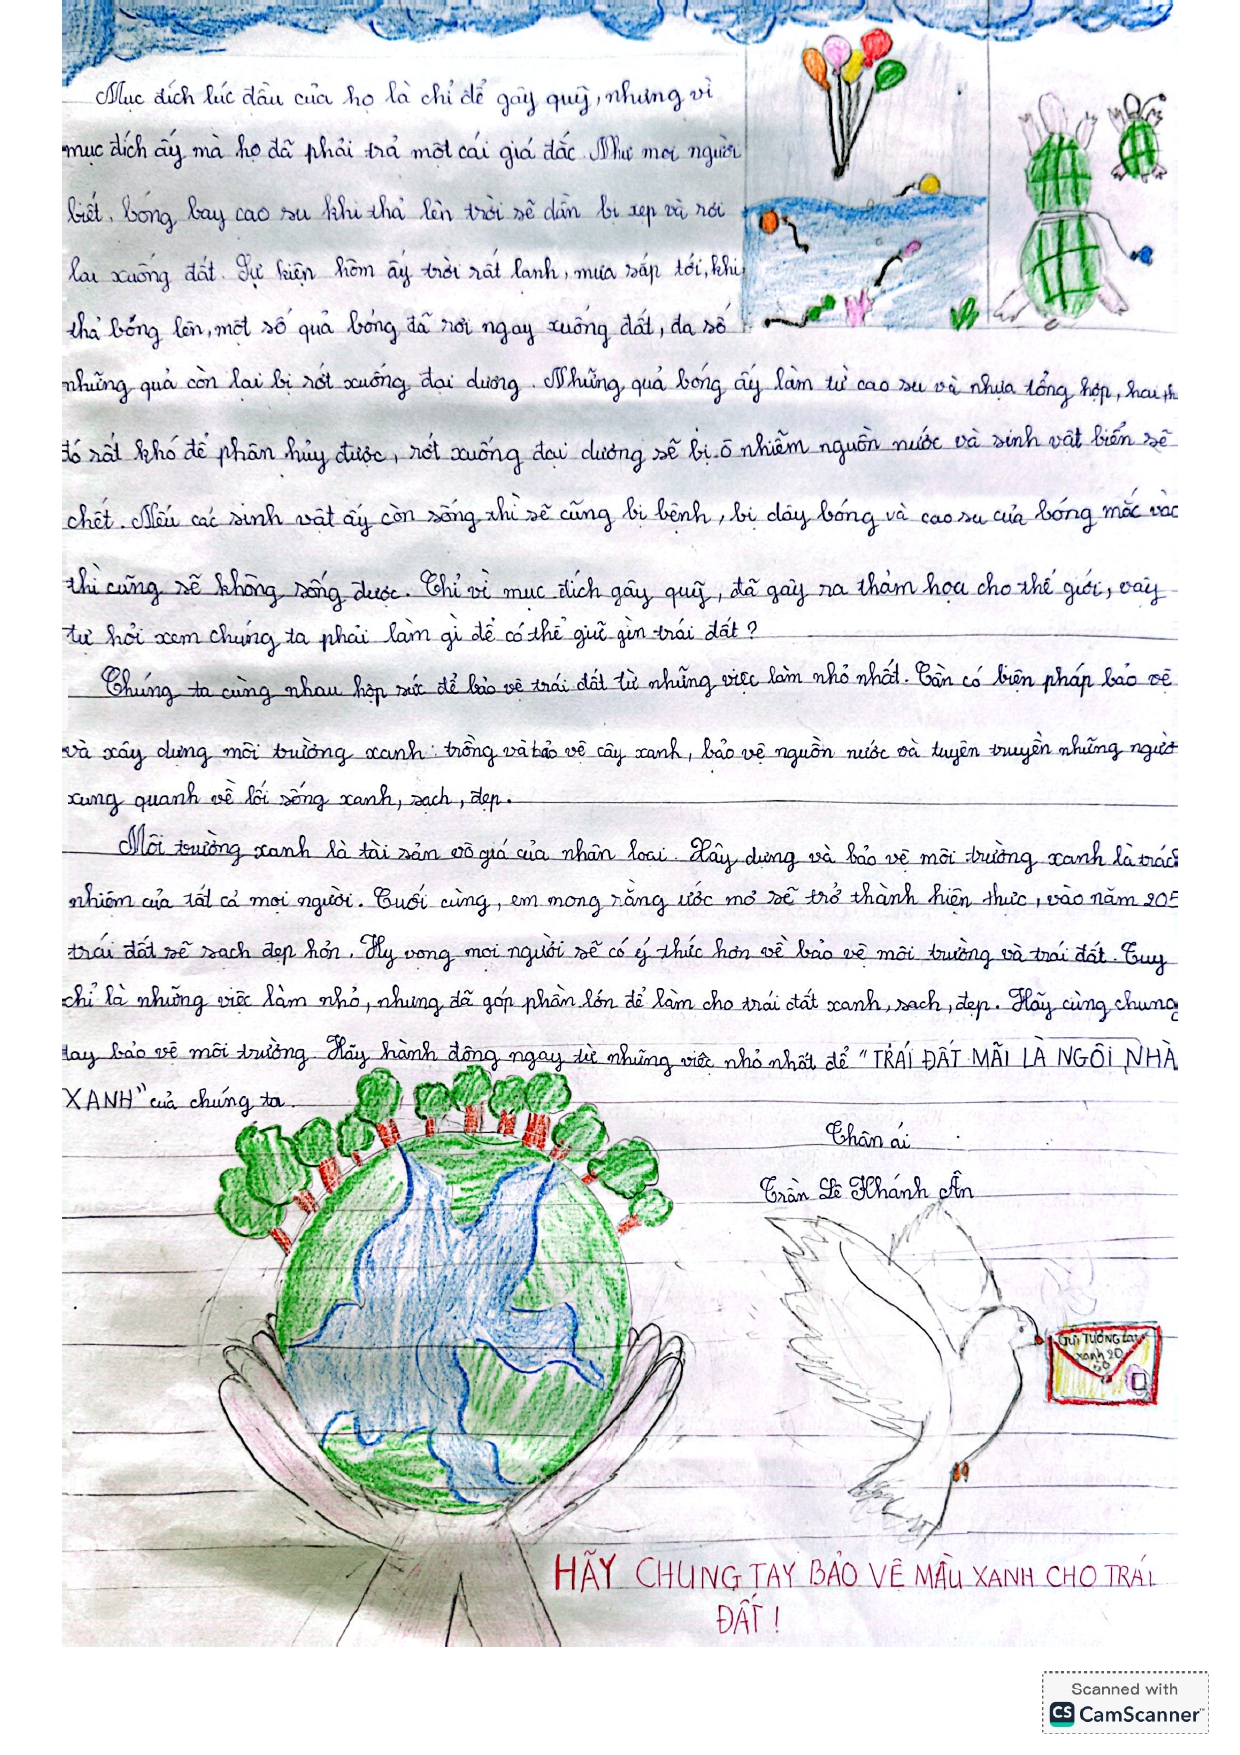 Mục đích lúc đầu của họ là chỉ để gây quỹ, nhưng vì
mục đích ấy mà họ đã phải trả một cái giá đắc. Như mọi người
biết, bóng bay cao su khi thả lên trời sẽ dần bị xẹp và rơi
lại xuống đất. Sự kiện hôm ấy trời rất lạnh, mưa sắp tới, khi
thả bóng lên, một số quả bóng đã rơi ngay xuống đất, đa số
những quả còn lại bị rớt xuống đại dương. Những quả bóng ấy làm từ cao su và nhựa tổng hợp, hai th
đó rất khó để phân hủy được, rớt xuống đại dương sẽ bị ô nhiễm nguồn nước và sinh vật biển sẽ
chết. Nếu các sinh vật ấy còn sống thì sẽ cũng bị bệnh, bị dây bóng và cao su của bóng mắc vào
thì cũng sẽ không sống được. Chỉ vì mục đích gây quỹ, đã gây ra thảm họa cho thế giới, vậy
tự hỏi xem chúng ta phải làm gì để có thể giữ gìn trái đất?
Chúng ta cùng nhau hợp sức để bảo vệ trái đất từ những việc làm nhỏ nhất. Cần có biện pháp bảo vệ
và xây dựng môi trường xanh: trồng và bảo vệ cây xanh, bảo vệ nguồn nước và tuyên truyền những ngườ
xung quanh về lối sống xanh, sạch, đẹp.
Môi trường xanh là tài sản vô giá của nhân loại. Xây dựng và bảo vệ môi trường xanh là trác
nhiệm của tất cả mọi người. Cuối cùng, em mong rằng ước mơ sẽ trở thành hiện thực, vào năm 205
trái đất sẽ sạch đẹp hơn. Hy vọng mọi người sẽ có ý thức hơn về bảo vệ môi trường và trái đất. Tuy
chỉ là những việc làm nhỏ, nhưng đã góp phần lớn để làm cho trái đất xanh, sạch, đẹp. Hãy cùng chung
tay bảo vệ môi trường. Hãy hành động ngay từ những việc nhỏ nhất để "TRÁI ĐẤT MÃI LÀ NGÔI NHÀ
XANH" của chúng ta.
Thân ái
Trần Lê Khánh Ân
GỬI TƯƠNG LAI
xanh 20
50
HÃY CHUNG TAY BẢO VỆ MÀU XANH CHO TRÁI
ĐẤT!
Scanned with
CS CamScanner